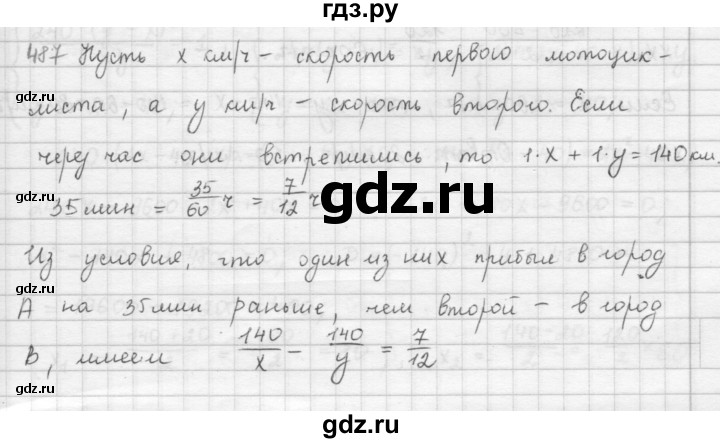 гдз.ру
487 Пусть x км/ч – скорость первого мотоцик-
листа, а y км/ч – скорость второго. Если
через час они встретились, то 1·x + 1·y = 140 км.
35 мин = 35/60 ч = 7/12 ч
gdz.ru
Из условия, что один из них прибыл в город
А на 35 мин раньше, чем второй – в город
В, имеем 140/x – 140/y = 7/12
gdz.ru